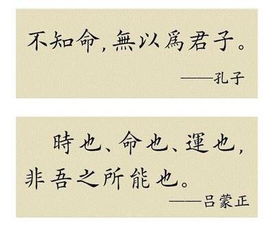 不知命，無以爲君子。
——孔子
時也、命也、運也，
非吾之所能也。
——吕蒙正